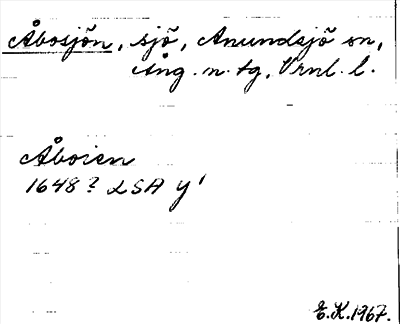 Åbosjön, sjö, Anundsjö sn,
Ång. n. tg, Vrnl. l.
Åboien
1648? LSA Y'
E.K. 1967.